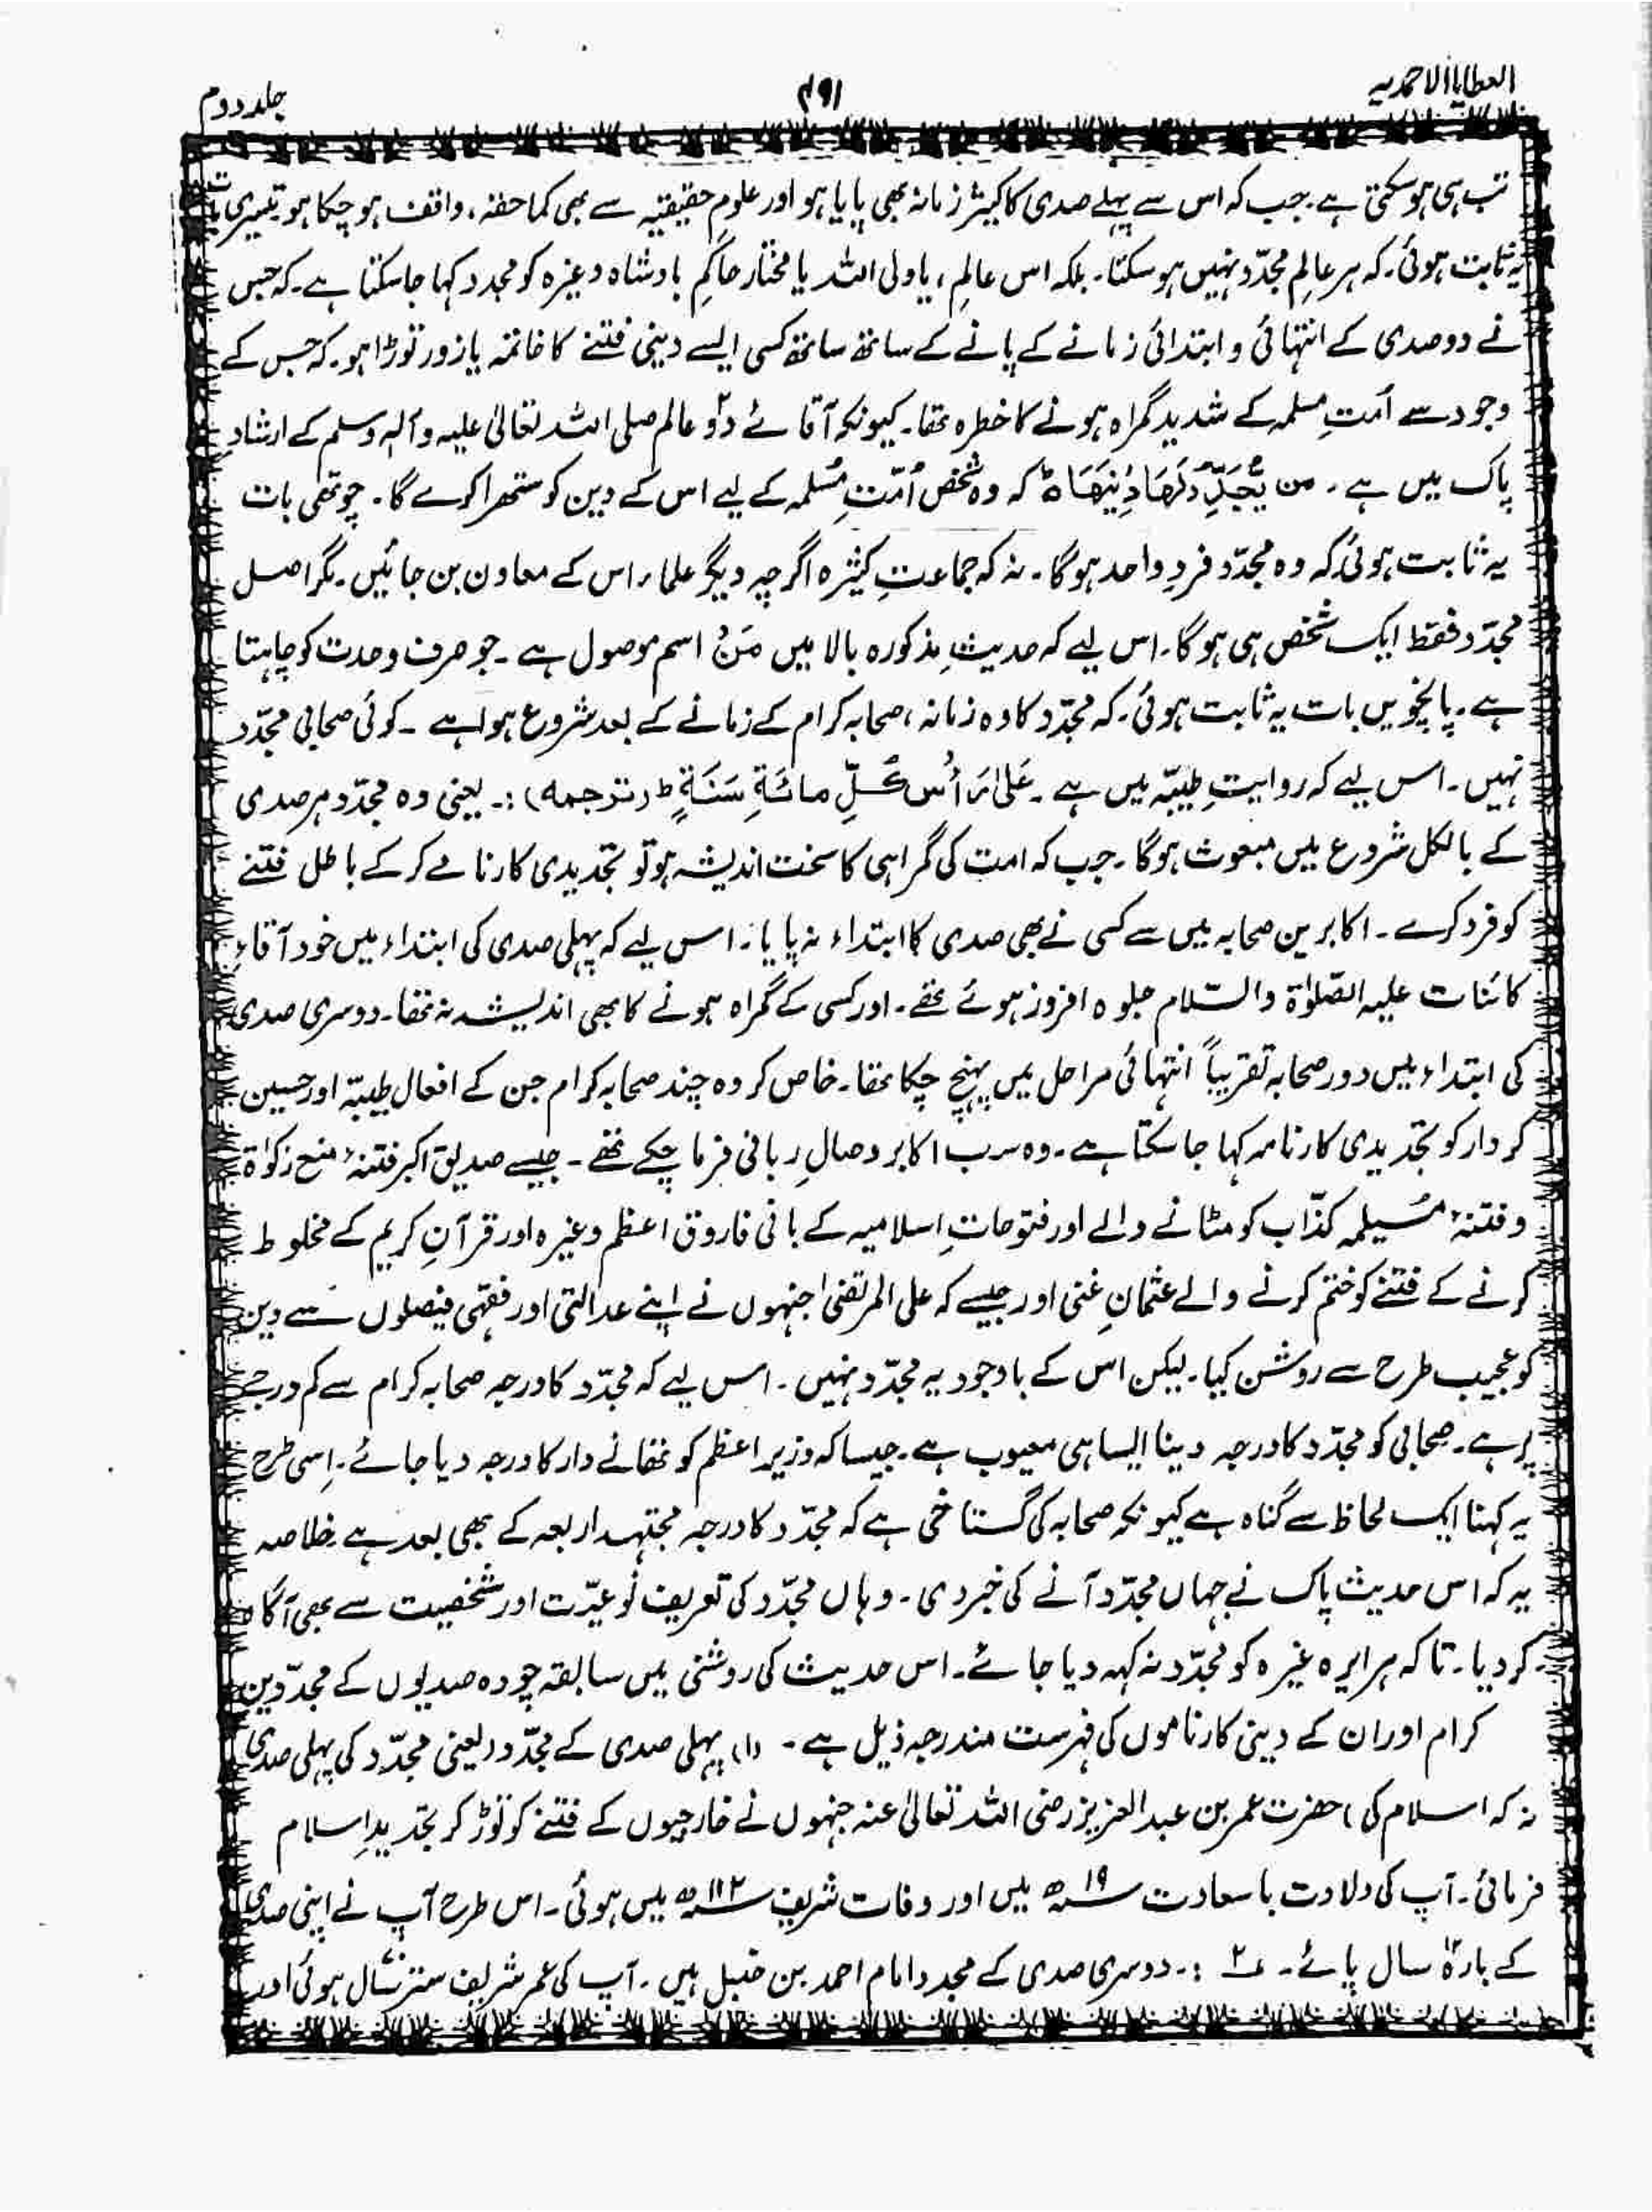 العطایا الاحمدیہ
۴۹۱
جلد دوم
تب ہی ہوسکتی ہے۔ جب کہ اس سے پہلے صدی کا کثیر زمانہ بھی پایا ہو اور علومِ حقیقیہ سے بھی کماحقہ، واقف ہو چکا ہو تیسری بات
یہ ثابت ہوئی۔ کہ ہر عالِم مجدّد نہیں ہوسکتا۔ بلکہ اس عالِم، یا ولی اللہ یا مختار حاکمِ بادشاہ وغیرہ کو مجدد کہا جاسکتا ہے۔ کہ جس
نے دو صدی کے انتہائی و ابتدائی زمانے کے پانے کے ساتھ ساتھ کسی ایسے دینی فتنے کا خاتمہ یا زور توڑا ہو۔ کہ جس کے
وجود سے اُمتِ مسلمہ کے شدید گمراہ ہونے کا خطرہ تھا۔ کیونکہ آقائے دوؔ عالم صلی اللہ تعالیٰ علیہ وآلہٖ وسلم کے ارشادِ
پاک میں ہے۔ من یُّجَدِّدُ لَھَا دِیْنَھَا ط کہ وہ شخص اُمّتِ مُسلمہ کے لیے اس کے دین کو ستھرا کرے گا۔ چوتھی بات
یہ ثابت ہوئی کہ وہ مجدّد فردِ واحد ہوگا۔ نہ کہ جماعتِ کثیرہ اگرچہ دیگر علماء اس کے معاون بن جائیں۔ مگر اصل
مجدّد فقط ایک شخص ہی ہوگا۔ اس لیے کہ حدیثِ مذکورہ بالا میں مَنْ اسم موصول ہے۔ جو صرف وحدت کو چاہتا
ہے۔ پانچویں بات یہ ثابت ہوئی۔ کہ مجدّد کا وہ زمانہ، صحابہ کرام کے زمانے کے بعد شروع ہوا ہے۔ کوئی صحابی مجدّد
نہیں۔ اس لیے کہ روایتِ طیبّہ میں ہے۔ عَلیٰ رَاْسِ کُلِّ مِائَةِ سَنَةٍ ط (ترجمہ):۔ یعنی وہ مجدّد ہر صدی
کے بالکل شروع میں مبعوث ہوگا۔ جب کہ امت کی گمراہی کا سخت اندیشہ ہو تو تجدیدی کارنامے کر کے باطل فتنے
کو فرد کرے۔ اکابرین صحابہ میں سے کسی نے بھی صدی کا ابتداء نہ پایا۔ اس لیے کہ پہلی صدی کی ابتداء میں خود آقاءِ
کائنات علیہ الصّلوٰۃ والسّلام جلوہ افروز ہوئے تھے۔ اور کسی کے گمراہ ہونے کا بھی اندیشہ نہ تھا۔ دوسری صدی
کی ابتداء میں دورِ صحابہ تقریباً انتہائی مراحل میں پہنچ چکا تھا۔ خاص کر وہ چند صحابہ کرام جن کے افعالِ طیبّہ اور حسین
کردار کو تجدیدی کارنامہ کہا جاسکتا ہے۔ وہ سب اکابر وصالِ ربانی فرما چکے تھے۔ جیسے صدیق اکبر فتنۂ منع زکوٰۃ
و فتنۂ مُسیلمہ کذّاب کو مٹانے والے اور فتوحاتِ اسلامیہ کے بانی فاروق اعظم وغیرہ اور قرآنِ کریم کے مخلوط
کرنے کے فتنے کو ختم کرنے والے عثمانِ غنی اور جیسے کہ علی المرتضیٰ جنہوں نے اپنے عدالتی اور فقہی فیصلوں سے دین
کو عجیب طرح سے روشن کیا۔ لیکن اس کے باوجود یہ مجدّد نہیں۔ اس لیے کہ مجدّد کا درجہ صحابہ کرام سے کم درجے
پر ہے۔ صحابی کو مجدّد کا درجہ دینا ایسا ہی معیوب ہے۔ جیسا کہ وزیراعظم کو تھانے دار کا درجہ دیا جائے۔ اِسی طرح
یہ کہنا ایک لحاظ سے گناہ ہے کیونکہ صحابہ کی گستاخی ہے کہ مجدّد کا درجہ مجتہد اربعہ کے بھی بعد ہے۔ خلاصہ
یہ کہ اس حدیث پاک نے جہاں مجدّد آنے کی خبر دی۔ وہاں مجدّد کی تعریف نُوعیّت اور شخصیت سے بھی آگاہ
کر دیا۔ تاکہ ہر ایرہ غیرہ کو مجدّد نہ کہہ دیا جائے۔ اس حدیث کی روشنی میں سابقہ چودہ صدیوں کے مجدّدین
کرام اور ان کے دینی کارناموں کی فہرست مندرجہ ذیل ہے۔ (۱) پہلی صدی کے مجدّد (یعنی مجدّد کی پہلی صدی
نہ کہ اسلام کی) حضرت عمر بن عبدالعزیز رضی اللہ تعالیٰ عنہ جنہوں نے خارجیوں کے فتنے کو توڑ کر تجدیدِ اسلام
فرمائی۔ آپ کی ولادت با سعادت ۱۹ سنہ ھ میں اور وفات شریف ۱۱۲ سنہ ھ میں ہوئی۔ اس طرح آپ نے اپنی صدی
کے بارہ۱۲ سال پائے۔ ۲ :۔ دوسری صدی کے مجدد امام احمد بن حنبل ہیں۔ آپ کی عمر شریف ستتر۷۷ سال ہوئی اور